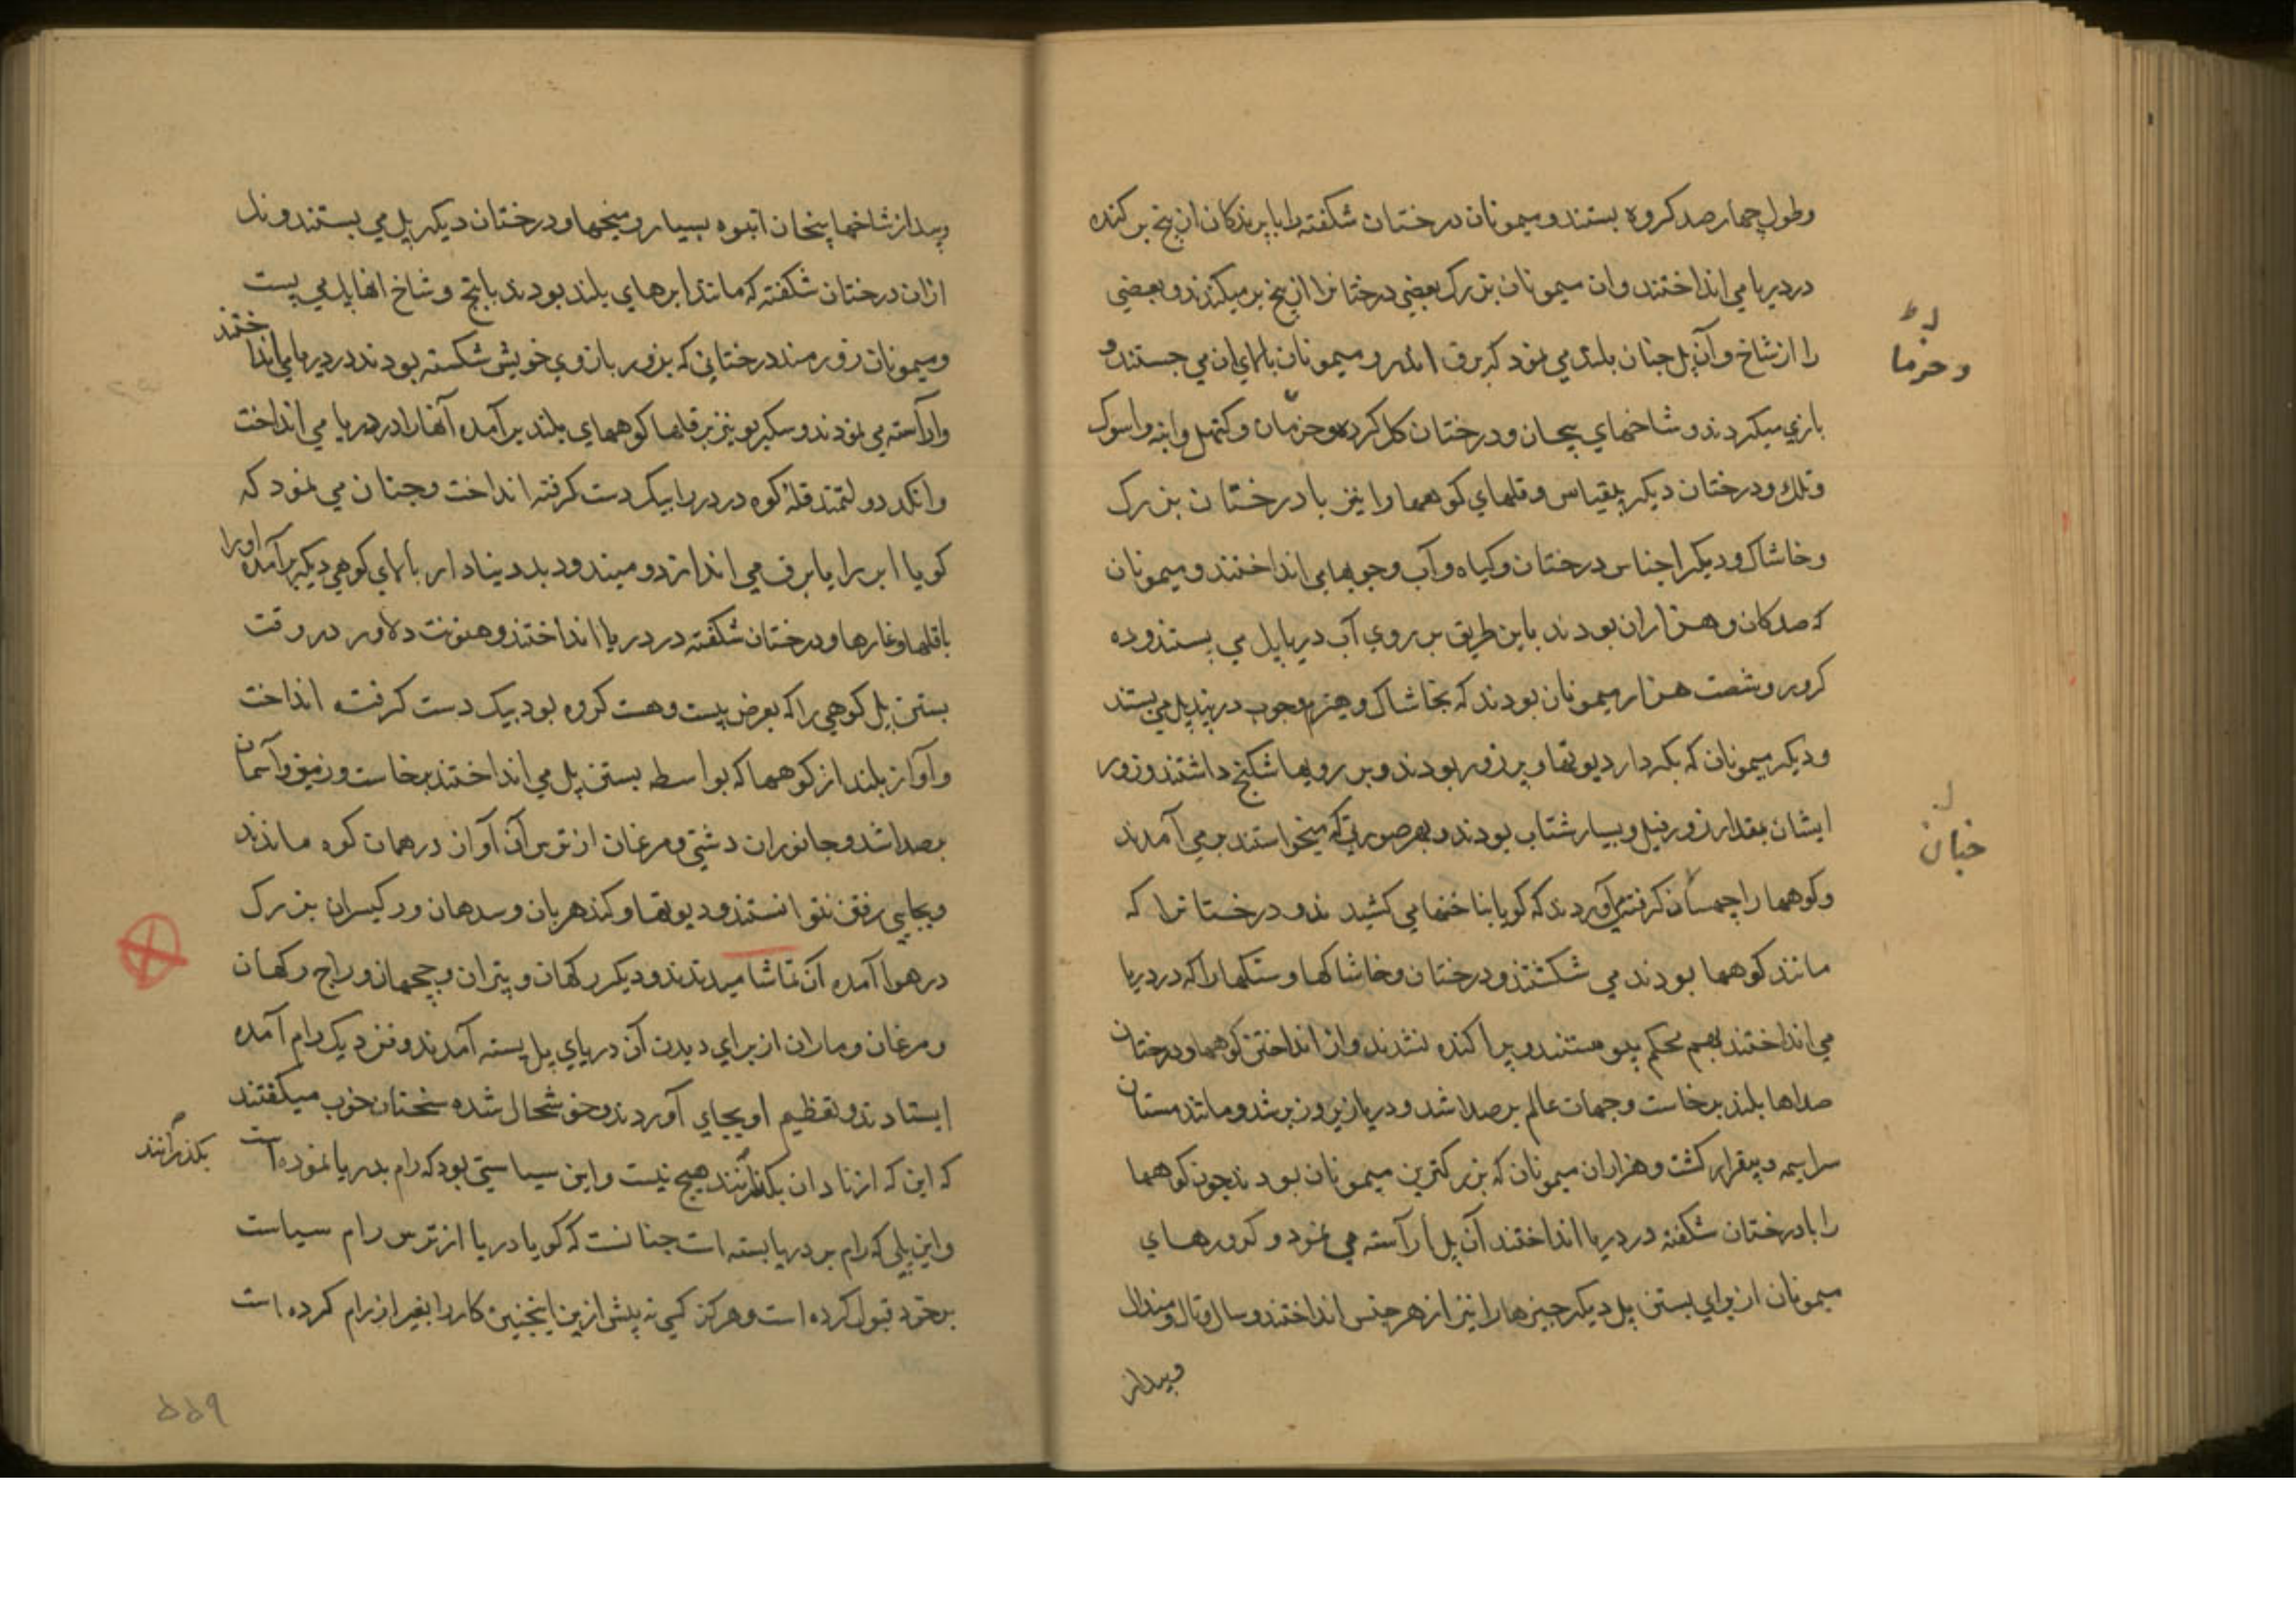 وطول چهار صد کروه بستند و میمونان درختان شکفته را با پرندکان از بیخ بر کنده
در دریا می انداختند وان میمونان بزرک بعضی درختانرا از بیخ بر میکندند و بعضی
را از شاخ و آن پل چنان بلند می نمود که برق و میمونان بالای ان می جستند و
بازی میکردند و شاخهای پیچان و درختان کل کرده وخرمان و کتهل وانبه واسوک
وتلک ودرختان دیکر بیقیاس و قلهای کوهها را نیز با درختان بزرک
وخاشاک و دیکر اجناس درختان وکیاه و آب وچوبها می انداختند و میمونان
که صدکان و هزاران بودند باین طریق بر روی آب دریا پل می بستند و ده
کرور و شصت هزار میمونان بودند که بخاشاک و هیزم وچوب پل می بستند
ودیکر میمونان که بکردار دیوتها و پر زور بودند و بر رویها شکنج داشتند و زور
ایشان بمقدار زور فیل و بسیار شتاب بودند و بهر صورتی که میخواستند بر می آمدند
وکوهها را کرفته می آوردند که کویا بناخنها می کشیدند و درختانرا که
مانند کوهها بودند می شکستند و درختان و خاشاکها و سنکها را که در دریا
می انداختند بهم محکم پیوستند و پراکنده نشدند و از انداختن کوهها و درختان
صداها بلند برخاست و جهات عالم پر صدا شد و دریا زیر و زبر شد و مانند مستان
سراسیمه و بیقرار کشت و هزاران میمونان که بزرکترین میمونان بودند چون کوهها
را با درختان شکفته در دریا انداختند آن پل را آراسته می نمود و کرورهای
میمونان از برای بستن پل دیکر چیزها را نیز از هر جنس انداختند و سال و تال و مندال
وبیدار
وخرما
خبان
وبیدار شاخها پیچان انبوه بسیار و میخها و درختان دیکر پل می بستند و نل
ازان درختان شکفته که مانند ابرهای بلند بودند با بیخ و شاخ انها پل می بست
ومیمونان زورمند درختانی که بزور بازوی خویش شکسته بودند در دریا می انداختند
و آراسته می نمودند و سکریو نیز بر قلها کوههای بلند برآمده آنها را در دریا می انداخت
وانکد دولتمند قله کوه در دریا بیک دست کرفته انداخت و چنان می نمود که
کویا ابر را با برق می اندازد و میند و دبد بنیاد ار بالای کوهی دیکر برآمده او را
با قلها وغارها و درختان شکفته در دریا انداختند و هنونت دلاور در وقت
بستن پل کوهی را که بعرض بیست وهست کروه بود بیک دست کرفته انداخت
و آواز بلند از کوهها که بواسطه بستن پل می انداختند برخاست و زمین و آسمان
بصدا شد و جانوران دشتی و مرغان از ترس آن آواز در همان کوه ماندند
وبجایی رفتن نتوانستند و دیوتها و کندهربان و سدهان ورکیسران بزرک
در هوا آمده آن تماشا میدیدند و دیکر رکهان و پتران و چچهان و راج رکهان
و مرغان و ماران از برای دیدن آن دریای پل بسته آمدند و نزدیک رام آمده
ایستادند و تعظیم او بجای آوردند و خوشحال شده سخنان خوب میکفتند
که این که از نادان بکذرانند هیچ نیست و این سیاستی بود که رام بدریا نموده است
واین پلی که رام بر دریا بسته است چنانست که کویا دریا از ترس رام سیاست
بر خود قبول کرده است و هرکز کسی نه پیش ازین اینچنین کار را بغیر از رام کرده است
بکذرانند
۵۵۹